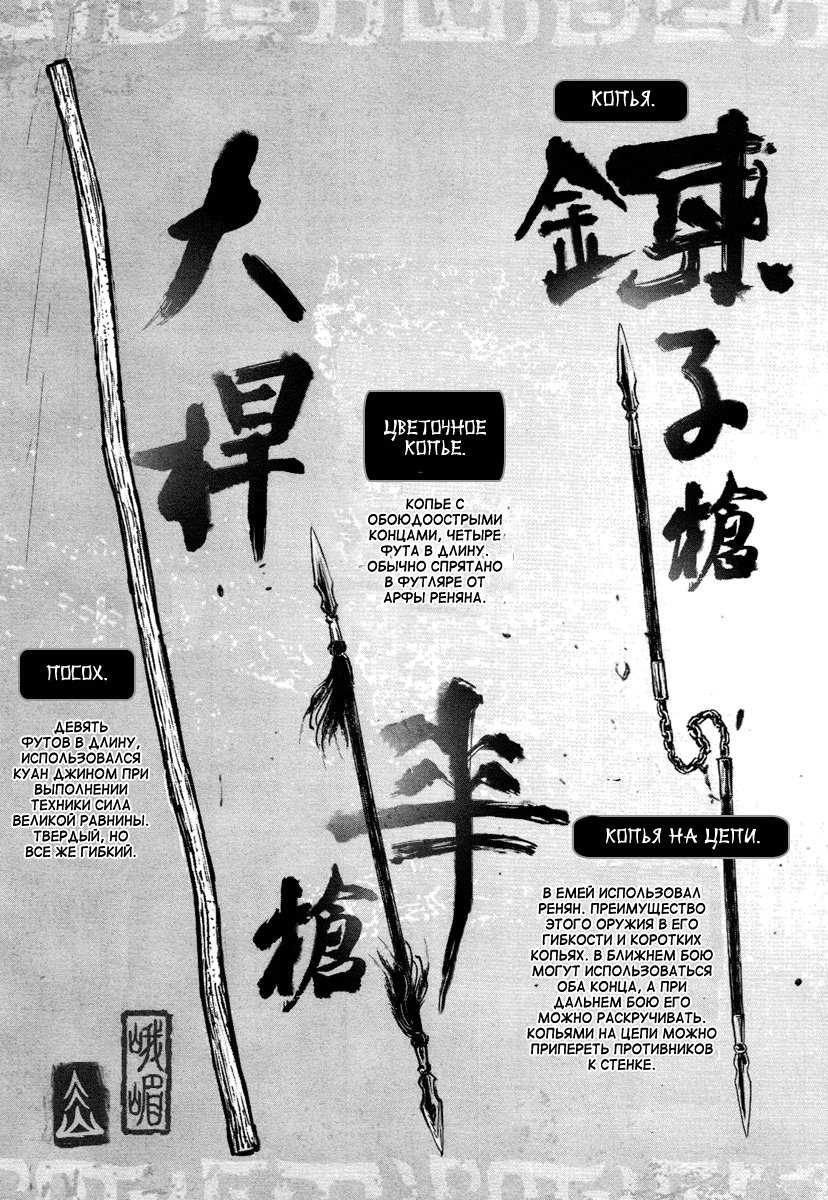 КОПЬЯ.
鍊
子
槍
大
桿
ЦВЕТОЧНОЕ
КОПЬЕ.
КОПЬЕ С
ОБОЮДООСТРЫМИ
КОНЦАМИ, ЧЕТЫРЕ
ФУТА В ДЛИНУ.
ОБЫЧНО СПРЯТАНО
В ФУТЛЯРЕ ОТ
АРФЫ РЕНЯНА.
ПОСОХ.
ДЕВЯТЬ
ФУТОВ В ДЛИНУ,
ИСПОЛЬЗОВАЛСЯ
КУАН ДЖИНОМ ПРИ
ВЫПОЛНЕНИИ
ТЕХНИКИ СИЛА
ВЕЛИКОЙ РАВНИНЫ.
ТВЕРДЫЙ, НО
ВСЕ ЖЕ ГИБКИЙ.
槍
КОПЬЯ НА ЦЕПИ.
В ЕМЕЙ ИСПОЛЬЗОВАЛ
РЕНЯН. ПРЕИМУЩЕСТВО
ЭТОГО ОРУЖИЯ В ЕГО
ГИБКОСТИ И КОРОТКИХ
КОПЬЯХ. В БЛИЖНЕМ БОЮ
МОГУТ ИСПОЛЬЗОВАТЬСЯ
ОБА КОНЦА, А ПРИ
ДАЛЬНЕМ БОЮ ЕГО
МОЖНО РАСКРУЧИВАТЬ.
КОПЬЯМИ НА ЦЕПИ МОЖНО
ПРИПЕРЕТЬ ПРОТИВНИКОВ
К СТЕНКЕ.
峨
嵋